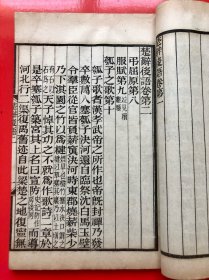 楚辭後語卷第二
弔屈原第八
服賦第九
瓠子之歌第十
瓠子歌者漢孝武帝之所作也帝既封禪乃發
卒數萬人塞瓠子決河還自臨祭沈白馬玉璧
令羣臣從官皆負薪
東郡燒
薪柴少
乃下淇園之竹以爲揵
天子悼其功之不就爲作歌詩二章於是
卒塞瓠子築宮其上名曰宣防
而導
河北行二渠復禹舊迹自此梁楚之地復寧無